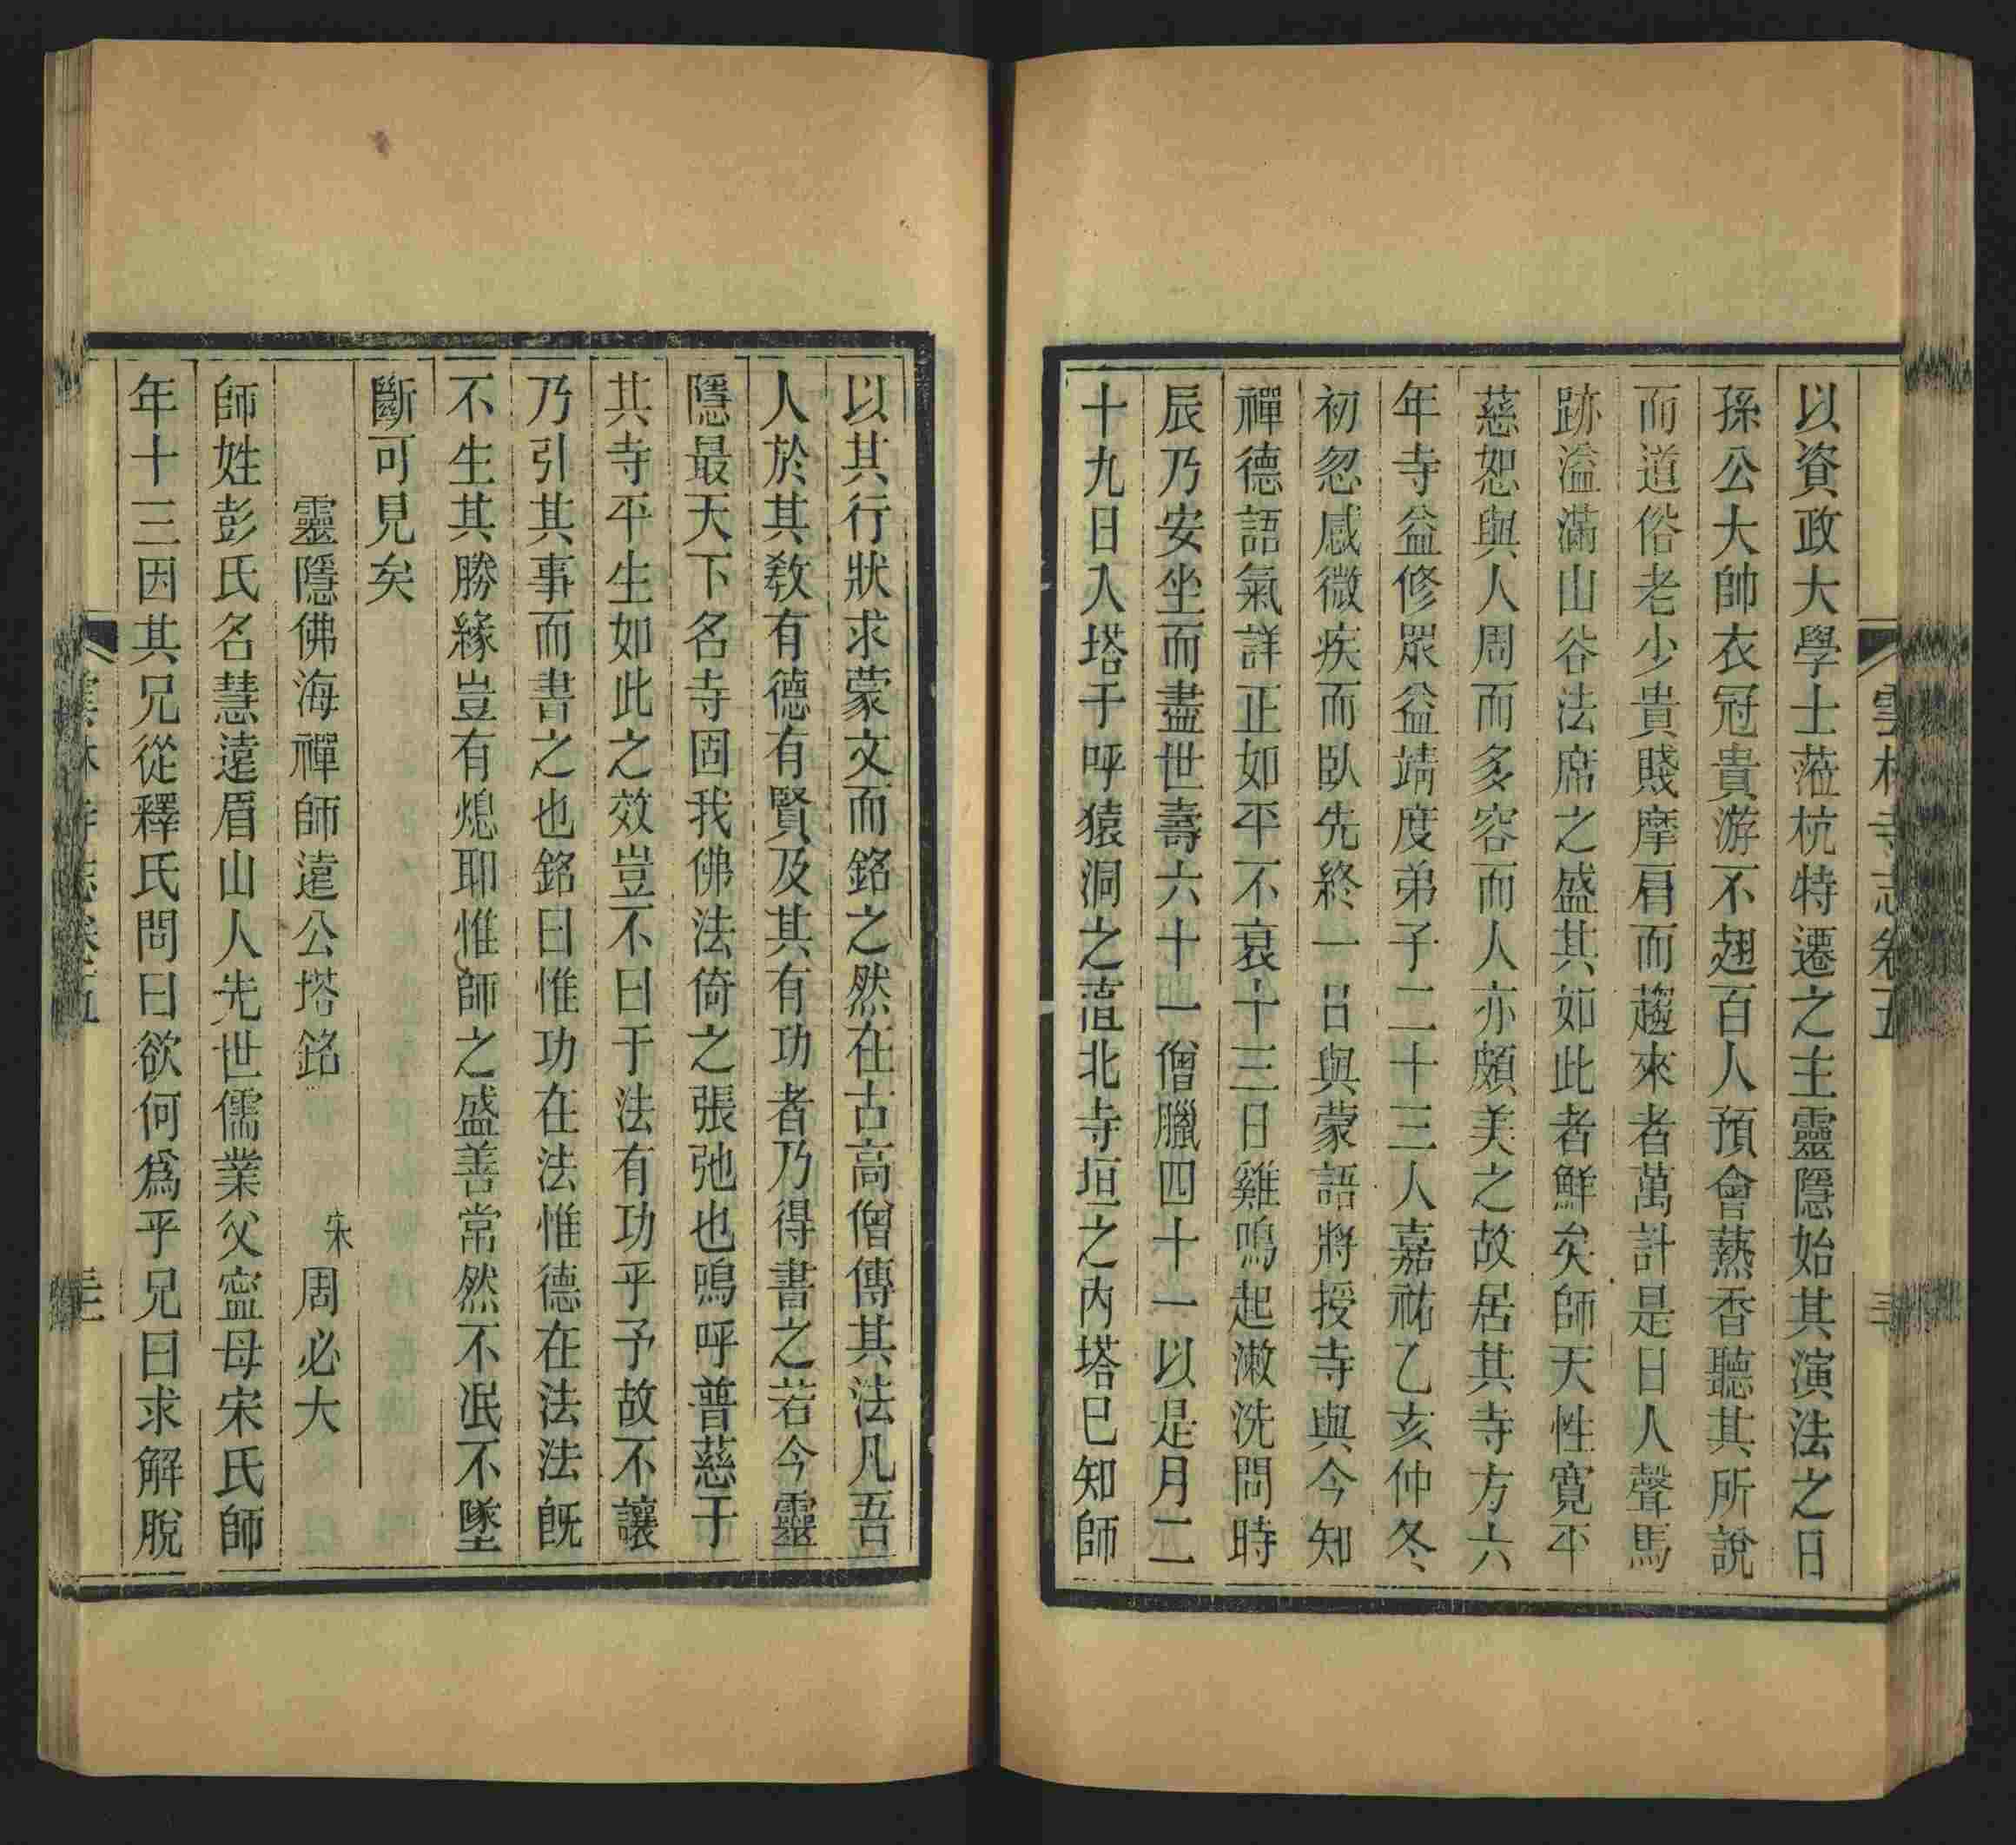 雲林寺志卷五
以資政大學士蒞杭特遷之主靈隱始其演法之日
孫公大帥衣冠貴游不翅百人預會爇香聽其所說
而道俗老少貴賤摩肩而趨來者萬計是日人聲馬
跡溢滿山谷法席之盛其如此者鮮矣師天性寬平
慈恕與人周而多容而人亦頗美之故居其寺方六
年寺益修眾益靖度弟子二十三人嘉祐乙亥仲冬
初忽感微疾而臥先終一日與蒙語將授寺與今知
禪德語氣詳正如平不衰十三日雞鳴起漱洗問時
辰乃安坐而盡世壽六十一僧臘四十一以是月二
十九日入塔于呼猿洞之直北寺垣之內塔已知師
以其行狀求蒙文而銘之然在古高僧傳其法凡吾
人於其教有德有賢及其有功者乃得書之若今靈
隱最天下名寺固我佛法倚之張弛也鳴呼普慈于
其寺平生如此之效豈不曰于法有功乎予故不讓
乃引其事而書之也銘曰惟功在法惟德在法法既
不生其勝緣豈有熄耶惟師之盛善常然不泯不墜
斷可見矣
靈隱佛海禪師遠公塔銘 宋 周必大
師姓彭氏名慧遠眉山人先世儒業父寍母宋氏師
年十三因其兄從釋氏問曰欲何爲乎兄曰求解脫
雲林寺志卷五